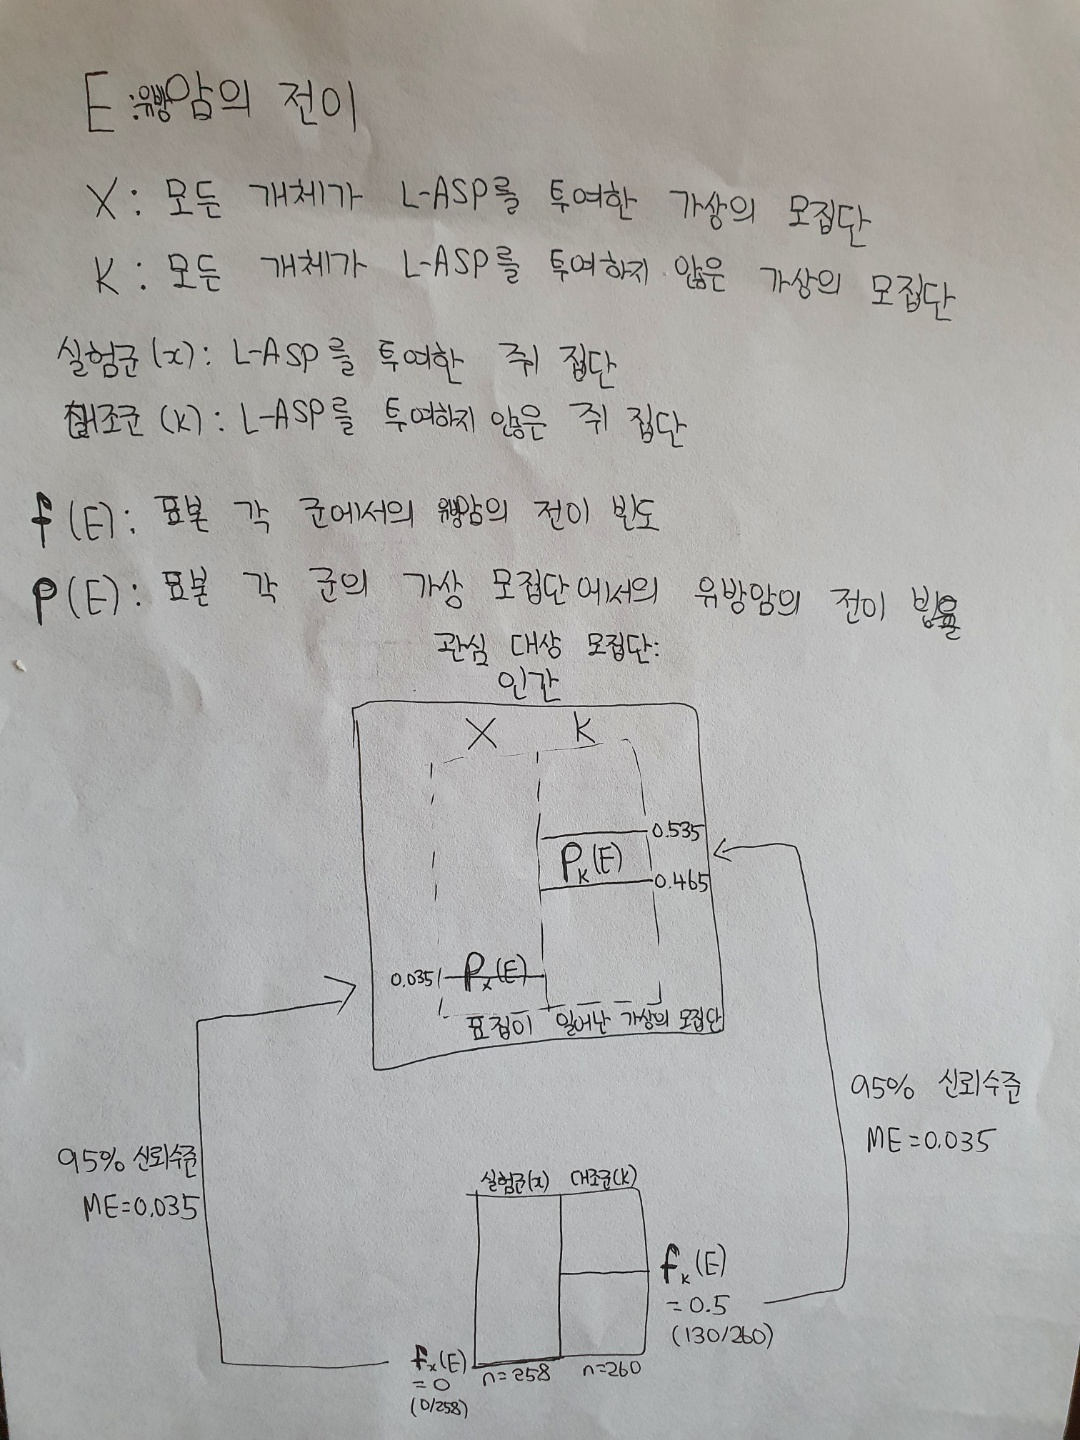 E : 유방암의 전이
X : 모든 개체가 L-ASP를 투여한 가상의 모집단
K : 모든 개체가 L-ASP를 투여하지 않은 가상의 모집단
실험군(x) : L-ASP를 투여한 쥐 집단
대조군 (K) : L-ASP를 투여하지 않은 쥐 집단
f(E) : 표본 각 군에서의 유방암의 전이 빈도
P(E) : 표본 각 군의 가상 모집단에서의 유방암의 전이 비율
관심 대상 모집단:
인간
X K
0.535
Pₖ(E)
0.465
0.035 Pₓ(E)
표집이 일어난 가상의 모집단
95% 신뢰수준
ME=0.035
95% 신뢰수준
ME=0.035
실험군(x) 대조군(K)
fₖ(E)
=0.5
(130/260)
fₓ(E)
=0
(0/258)
n=258 n=260